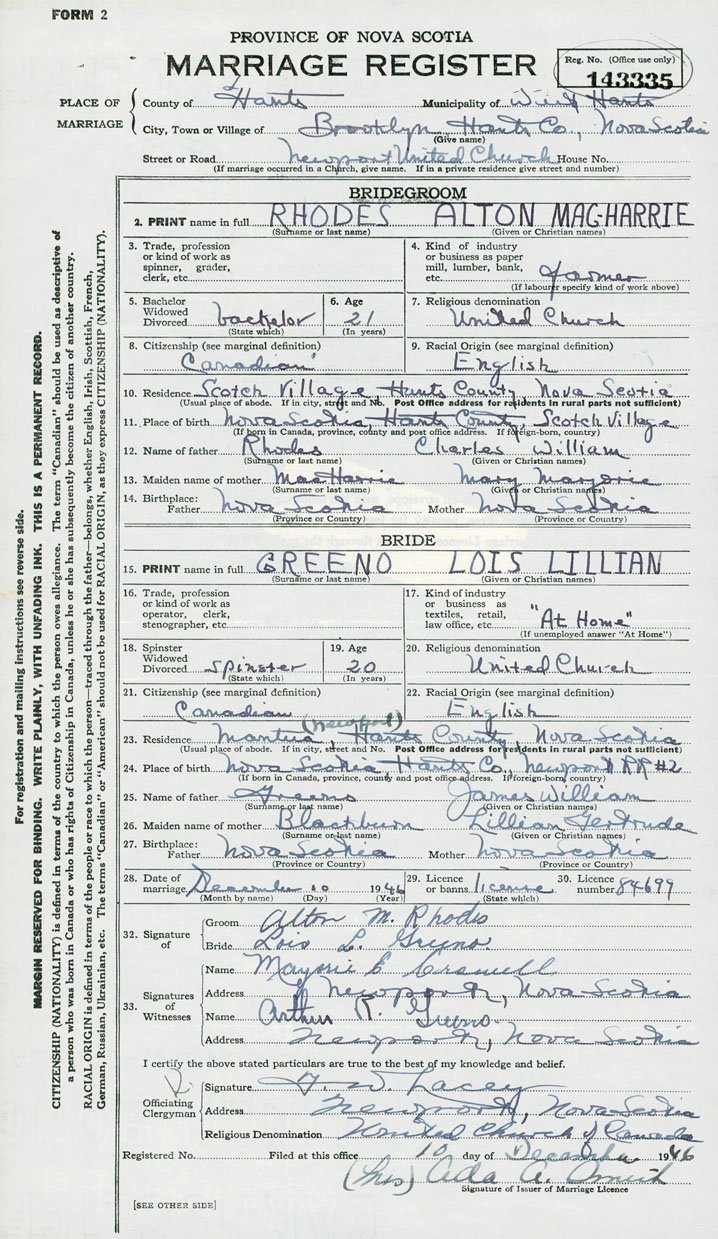 FORM 2
PROVINCE OF NOVA SCOTIA
MARRIAGE REGISTER
Reg. No. (Office use only)
143335
PLACE OF MARRIAGE
County of Hants Municipality of West Hants
City, Town or Village of Brooklyn Hants Co., Nova Scotia
(Give name)
Street or Road Newport United Church House No.
(If marriage occurred in a Church, give name. If in a private residence give street and number)
BRIDEGROOM
2. PRINT name in full RHODES ALTON MAC-HARRIE
(Surname or last name) (Given or Christian names)
3. Trade, profession or kind of work as spinner, grader, clerk, etc.
4. Kind of industry or business as paper mill, lumber, bank, etc. farmer
(If labourer specify kind of work above)
5. Bachelor Widowed Divorced bachelor
(State which)
6. Age 21
(In years)
7. Religious denomination
United Church
8. Citizenship (see marginal definition)
Canadian
9. Racial Origin (see marginal definition)
English
10. Residence Scotch Village, Hants County, Nova Scotia
(Usual place of abode. If in city, street and No. Post Office address for residents in rural parts not sufficient)
11. Place of birth Nova Scotia, Hants County, Scotch Village
(If born in Canada, province, county and post office address. If foreign-born, country)
12. Name of father Rhodes Charles William
(Surname or last name) (Given or Christian names)
13. Maiden name of mother MacHarrie Mary Marjorie
(Surname or last name) (Given or Christian names)
14. Birthplace: Father Nova Scotia Mother Nova Scotia
(Province or Country) (Province or Country)
BRIDE
15. PRINT name in full GREENO LOIS LILLIAN
(Surname or last name) (Given or Christian names)
16. Trade, profession or kind of work as operator, clerk, stenographer, etc.
17. Kind of industry or business as textiles, retail, law office, etc. "At Home"
(If unemployed answer "At Home")
18. Spinster Widowed Divorced Spinster
(State which)
19. Age 20
(In years)
20. Religious denomination
United Church
21. Citizenship (see marginal definition)
Canadian
22. Racial Origin (see marginal definition)
English
(Newport)
23. Residence Mantua, Hants County, Nova Scotia
(Usual place of abode. If in city, street and No. Post Office address for residents in rural parts not sufficient)
24. Place of birth Nova Scotia Hants Co., Newport RR #2
(If born in Canada, province, county and post office address. If foreign-born, country)
25. Name of father Greeno James William
(Surname or last name) (Given or Christian names)
26. Maiden name of mother Blackburn Lillian Gertrude
(Surname or last name) (Given or Christian names)
27. Birthplace: Father Nova Scotia Mother Nova Scotia
(Province or Country) (Province or Country)
28. Date of marriage December 10 1946
(Month by name) (Day) (Year)
29. Licence or banns license
(State which)
30. Licence number 84699
32. Signature of
Groom Alton M. Rhodes
Bride Lois L. Greeno.
33. Signatures of Witnesses
Name Marjorie E
Address Newport, Nova Scotia
Name Arthur R. Greeno.
Address Newport, Nova Scotia
I certify the above stated particulars are true to the best of my knowledge and belief.
Officiating Clergyman
Signature W. Lacey
Address Newport, Nova Scotia
Religious Denomination United Church of Canada
Registered No. Filed at this office 10 day of December 1946
(Mrs) Ada A. Smith
Signature of Issuer of Marriage Licence
[SEE OTHER SIDE]
For registration and mailing instructions see reverse side.
MARGIN RESERVED FOR BINDING. WRITE PLAINLY, WITH UNFADING INK. THIS IS A PERMANENT RECORD.
CITIZENSHIP (NATIONALITY) is defined in terms of the country to which the person owes allegiance. The term "Canadian" should be used as descriptive of
a person who was born in Canada or who has rights of Citizenship in Canada, unless he or she has subsequently become the citizen of another country.
RACIAL ORIGIN is defined in terms of the people or race to which the person—traced through the father—belongs, whether English, Irish, Scottish, French,
German, Russian, Ukrainian, etc. The terms "Canadian" or "American" should not be used for RACIAL ORIGIN, as they express CITIZENSHIP (NATIONALITY).